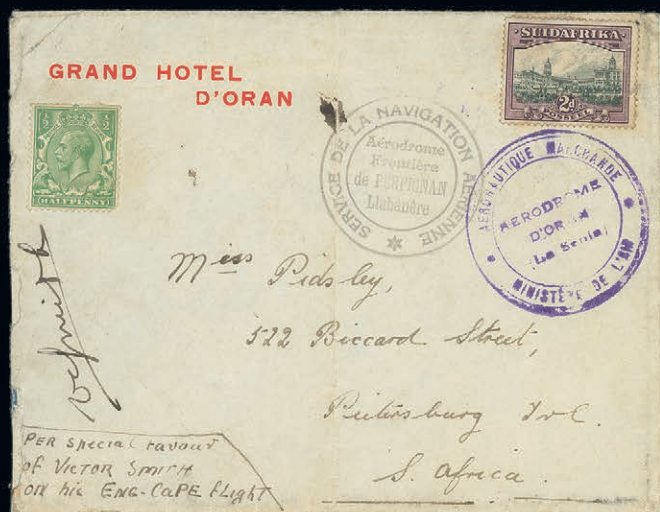 GRAND HOTEL
D'ORAN
SUIDAFRIKA
2d
POSSEEL
½ ½
HALFPENNY
SERVICE DE LA NAVIGATION AÉRIENNE
Aérodrome
Frontière
de PERPINAN
Llabanère
AÉRONAUTIQUE MARCHANDE
AERODROME
D'ORAN
(La Senia)
MINISTÈRE DE L'AIR
Miss Pidsley,
522 Biccard Street,
Pietersburg Tvl.
S. Africa.
PER special favour
of VICTOR SMITH
on his ENG-CAPE flight